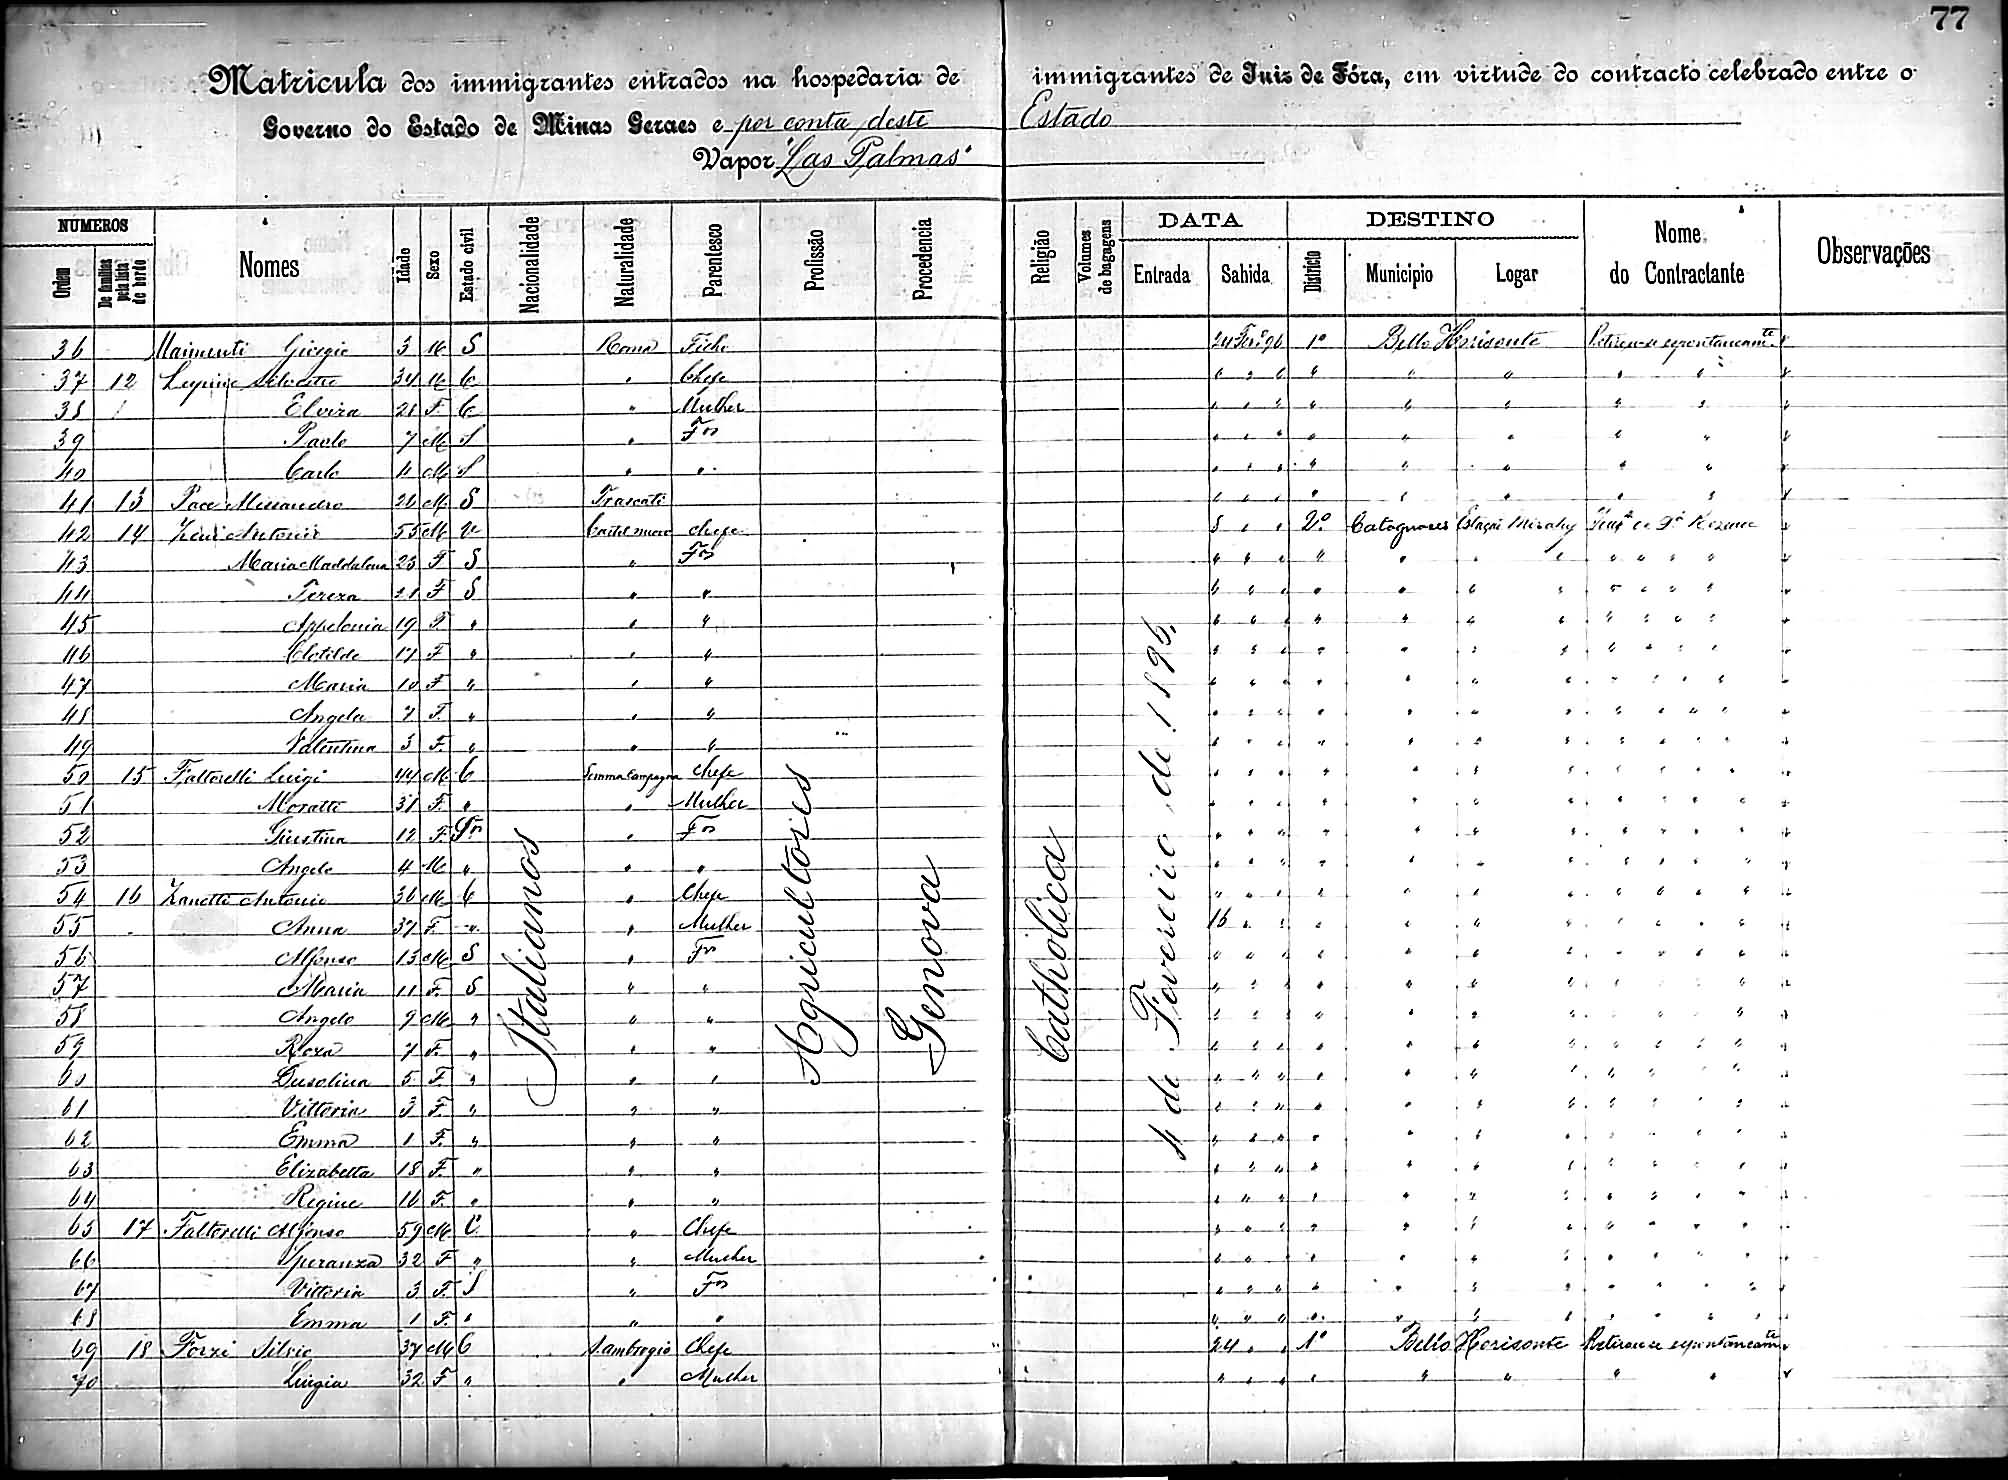 77
Matricula dos immigrantes entrados na hospedaria de immigrantes de Juiz de Fóra, em virtude do contracto celebrado entre o
Governo do Estado de Minas Geraes e por conta deste Estado
Vapor "Las Palmas"
NUMEROS Nomes Idade Sexo Estado civil Nacionalidade Naturalidade Parentesco Profissão Procedencia Religião Volumes de bagagens DATA DESTINO Nome do Contractante Observações
Ordem De familias pela lista de bordo Entrada Sahida Districto Municipio Logar
Italianos
Agricultores
Genova
Catholica
4 de Fevereiro de 1896.
36 Maimenti Giorgio 3 M S Roma Filho 24 Fevº 96 1º Bello Horisonte Retirou-se espontaneamte
37 12 Silvestre 34 M C " Chefe " " " " " " " "
38 Elvira 28 F. C " Mulher " " " " " " " "
39 Paolo 7 M S " Fos " " " " " " " "
40 Carlo 4 M S " " " " " " " " " "
41 13 Pace Alessandro 26 M S Frascati " " " " " " " "
42 14 Zeni Antonio 55 M V Castelnuovo Chefe 5 " " 2º Cataguases Estação Mirahy
43 Maria Maddalena 23 F S " Fos " " " " " " " " " "
44 Tereza 21 F S " " " " " " " " " " " "
45 Appolonia 19 F. " " " " " " " " " " " " "
46 Clotilde 17 F " " " " " " " " " " " " "
47 Maria 10 F " " " " " " " " " " " " "
48 Angela 7 F. " " " " " " " " " " " " "
49 Valentina 3 F. " " " " " " " " " " " " "
50 15 Fattorelli Luigi 44 M C Somma Campagna Chefe " " " " " " " " " "
51 Moratti 31 F. " " Mulher " " " " " " " " " "
52 Giustina 12 F. Sos " Fos " " " " " " " " " "
53 Angelo 4 M " " " " " " " " " " " " "
54 16 Zanetti Antonio 36 M C " Chefe " " " " " " " " " "
55 Anna 37 F " " Mulher 16 " " " " " " " " "
56 Alfonso 13 M S " Fos " " " " " " " " " "
57 Maria 11 F. S " " " " " " " " " " " "
58 Angelo 9 M " " " " " " " " " " " " "
59 Roza 7 F. " " " " " " " " " " " " "
60 Dusolina 5 F " " " " " " " " " " " " "
61 Vittoria 3 F. " " " " " " " " " " " " "
62 Emma 1 F. " " " " " " " " " " " " "
63 Elizabetta 18 F. " " " " " " " " " " " " "
64 Regina 16 F. " " " " " " " " " " " " "
65 17 Fattorelli Alfonso 59 M C. " Chefe " " " " " " " " " "
66 Speranza 32 F " " Mulher " " " " " " " " " "
67 Vittoria 3 F. S " Fos " " " " " " " " " "
68 Emma 1 F. " " " " " " " " " " " " "
69 18 Forzi Silvio 37 M C S. Ambrogio Chefe 24 " " 1º Bello Horisonte Retirou-se espontaneamte
70 Luigia 32 F " " Mulher " " " " " " " "